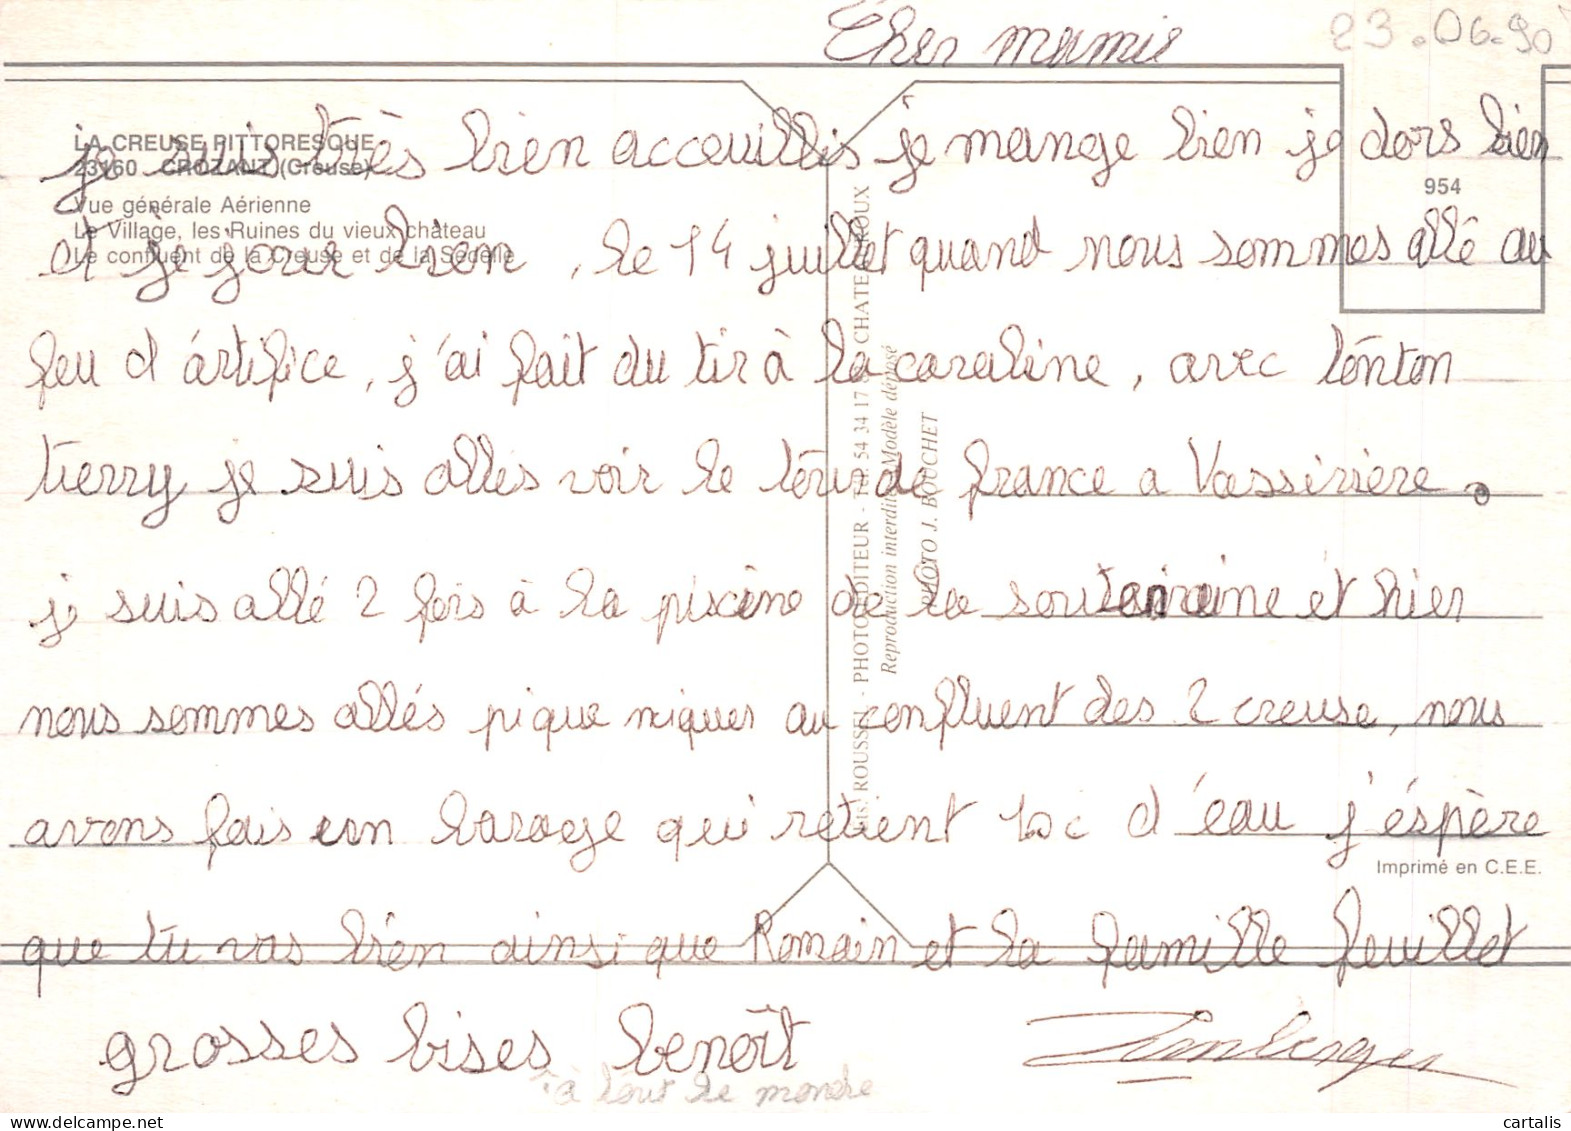 Cher mamie
23.06.90
LA CREUSE PITTORESQUE
23160 - CROZANT (Creuse)
Vue générale Aérienne
Le Village, les Ruines du vieux château
Le confluent de la Creuse et de la Sédelle
954
je suis très bien acceuillis je mange bien je dors bien
et je joue bien, le 14 juillet quand nous sommes allé au
feu d'artifice, j'ai fait du tir à la carabine, avec tonton
tierry je suis allés voir le tour de france a Vassivière.
je suis allé 2 fois à la piscine de la souterraine et hier
nous sommes allés pique niquer au confluent des 2 creuse, nous
avons fais un barage qui retient d'eau j'éspère
que tu vas bien ainsi que Romain et la famille feuillet
grosses bises benoît
à tout le monde
ROUSSEL - PHOTO-EDITEUR - Tél. 54 34 17 CHATEAUROUX
Reproduction interdite Modèle déposé
PHOTO J. BOUCHET
Imprimé en C.E.E.
cartalis